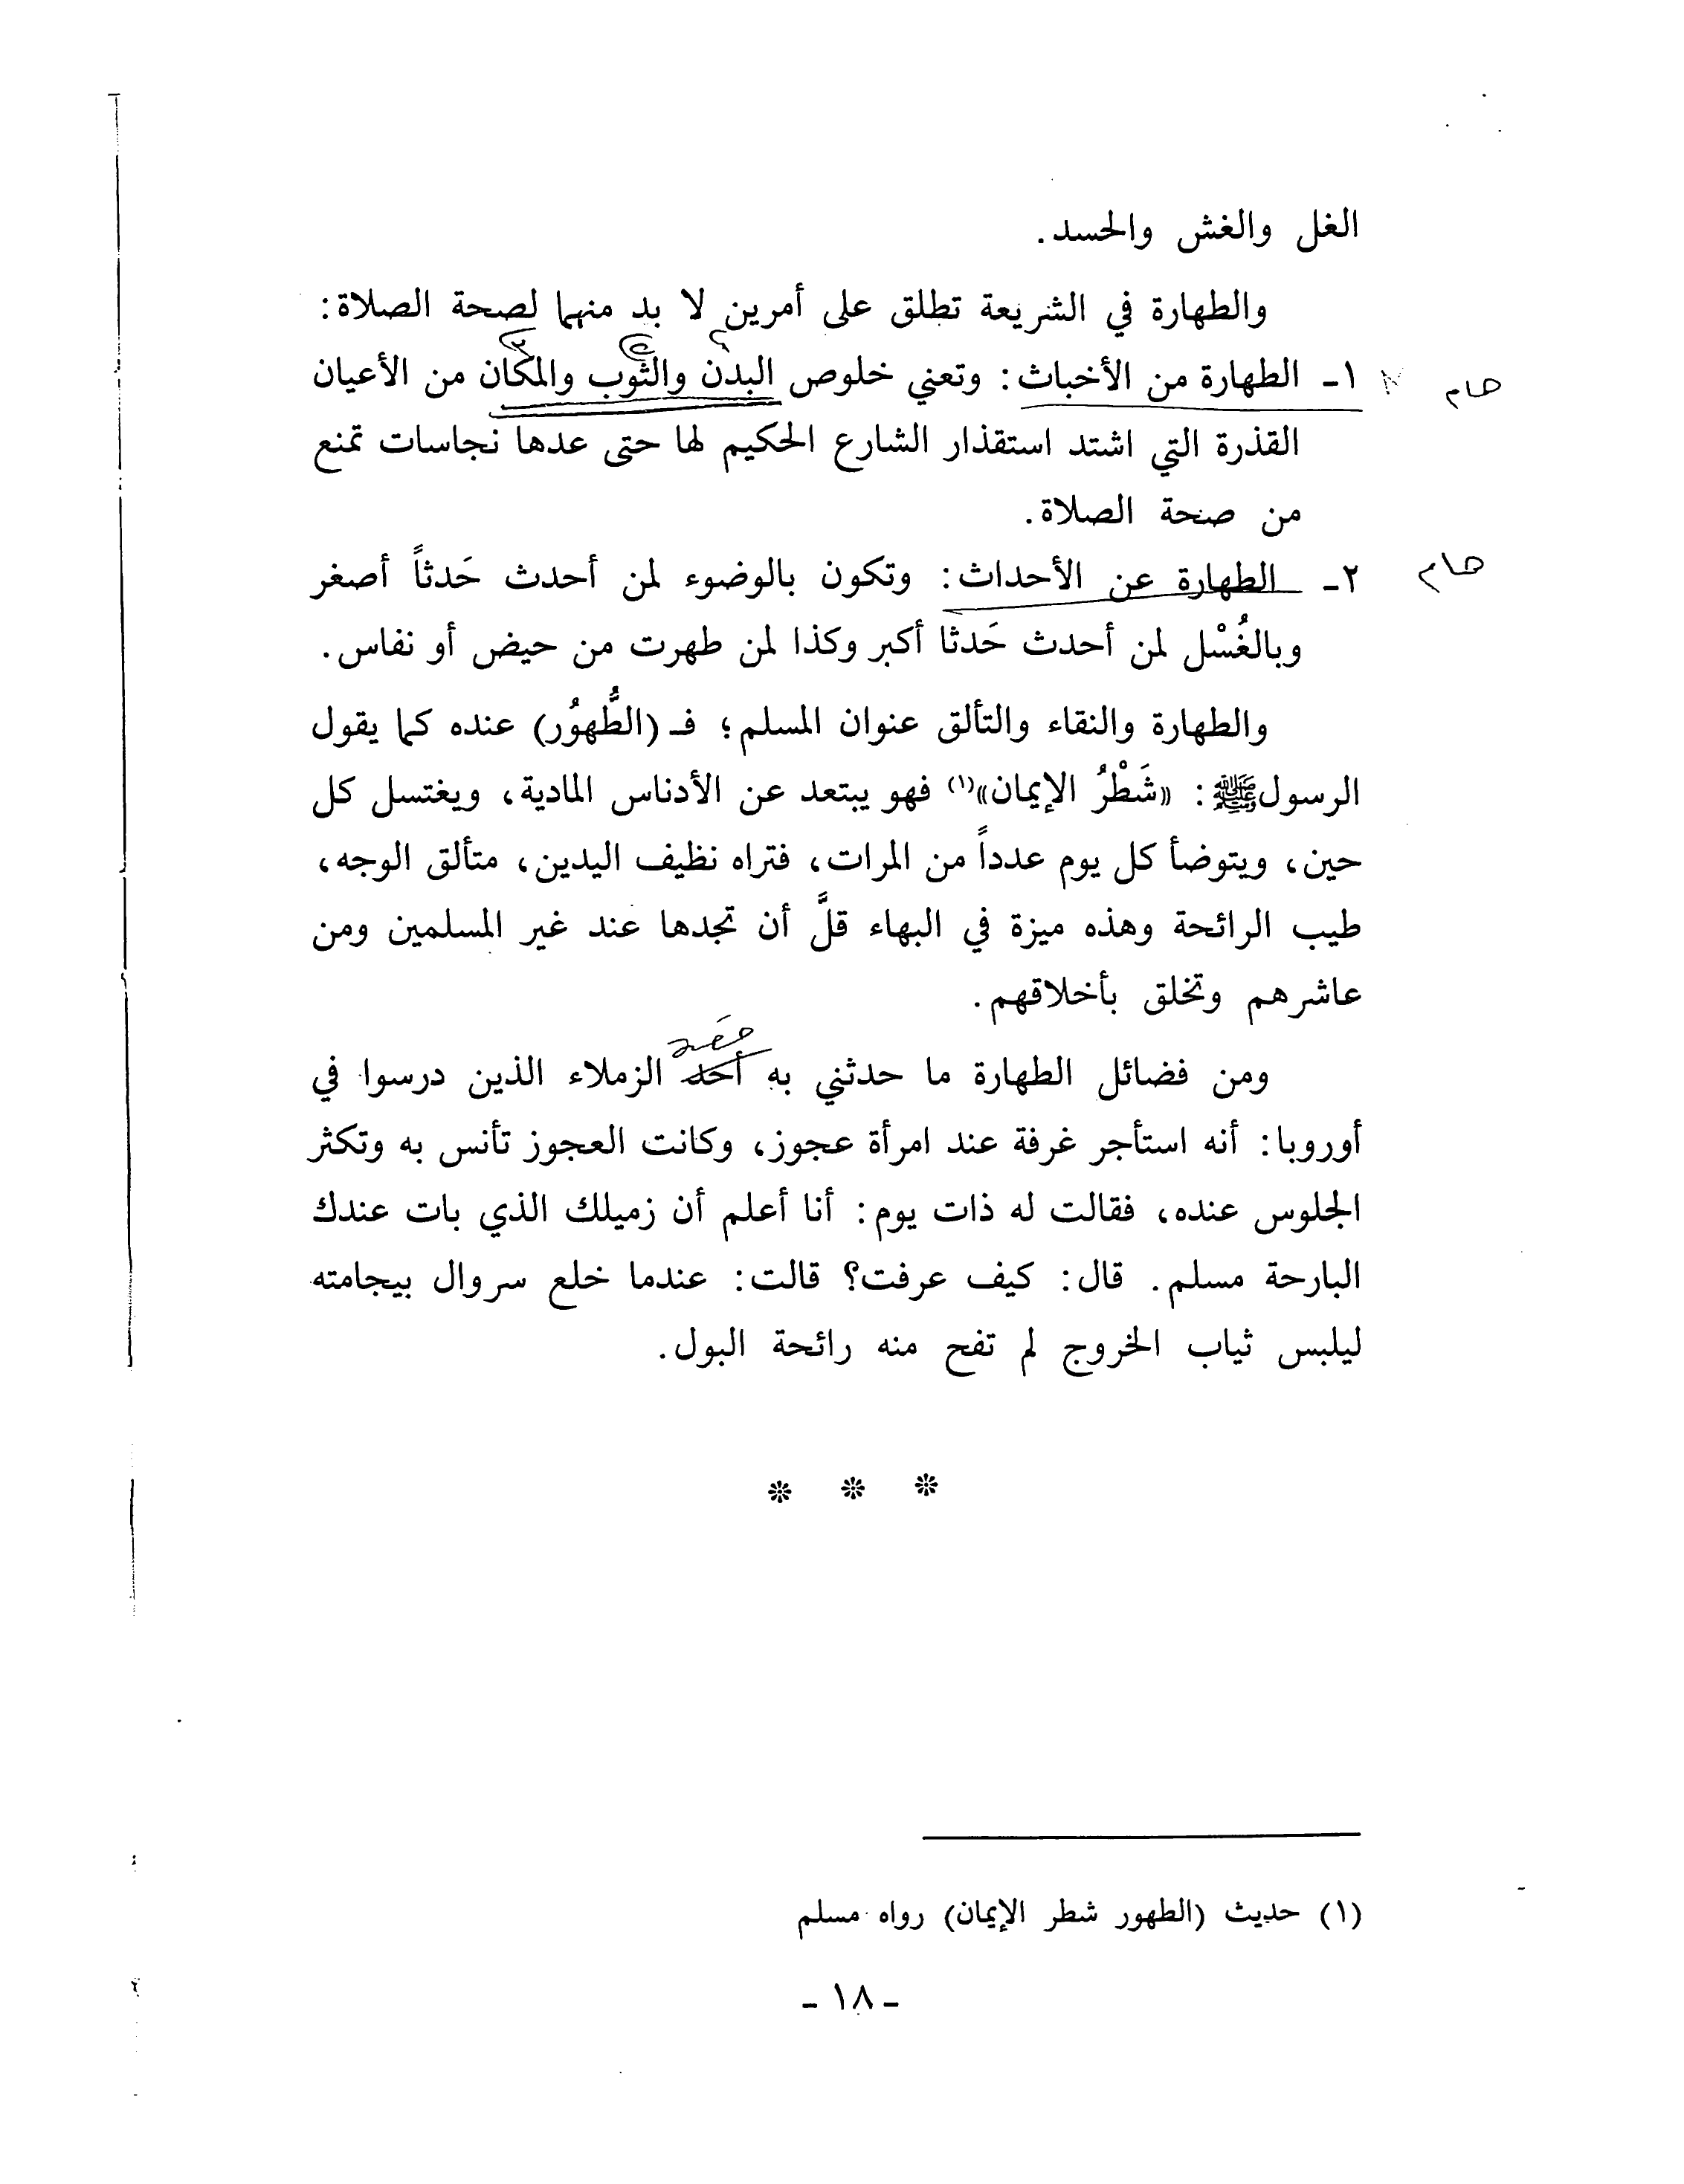 الغل والغش والحسد.
والطهارة في الشريعة تطلق على أمرين لا بد منهما لصحة الصلاة:
١ـ الطهارة من الأخباث: وتعني خلوص البدن والثوب والمكان من الأعيان
هام
القذرة التي اشتد استقذار الشارع الحكيم لها حتى عدها نجاسات تمنع
من صحة الصلاة.
٢ـ الطهارة عن الأحداث: وتكون بالوضوء لمن أحدث حَدثاً أصغر
هام
وبالغُسْل لمن أحدث حَدثا أكبر وكذا لمن طهرت من حيض أو نفاس.
والطهارة والنقاء والتألق عنوان المسلم؛ فـ (الطُّهوُر) عنده كما يقول
الرسول ﷺ: «شَطْرُ الإيمان»(١) فهو يبتعد عن الأدناس المادية، ويغتسل كل
حين، ويتوضأ كل يوم عدداً من المرات، فتراه نظيف اليدين، متألق الوجه،
طيب الرائحة وهذه ميزة في البهاء قلَّ أن تجدها عند غير المسلمين ومن
عاشرهم وتخلق بأخلاقهم.
ومن فضائل الطهارة ما حدثني به أحد الزملاء الذين درسوا في
أوروبا: أنه استأجر غرفة عند امرأة عجوز، وكانت العجوز تأنس به وتكثر
الجلوس عنده، فقالت له ذات يوم: أنا أعلم أن زميلك الذي بات عندك
البارحة مسلم. قال: كيف عرفت؟ قالت: عندما خلع سروال بيجامته
ليلبس ثياب الخروج لم تفح منه رائحة البول.
(١) حديث (الطهور شطر الإيمان) رواه مسلم
- ١٨ -